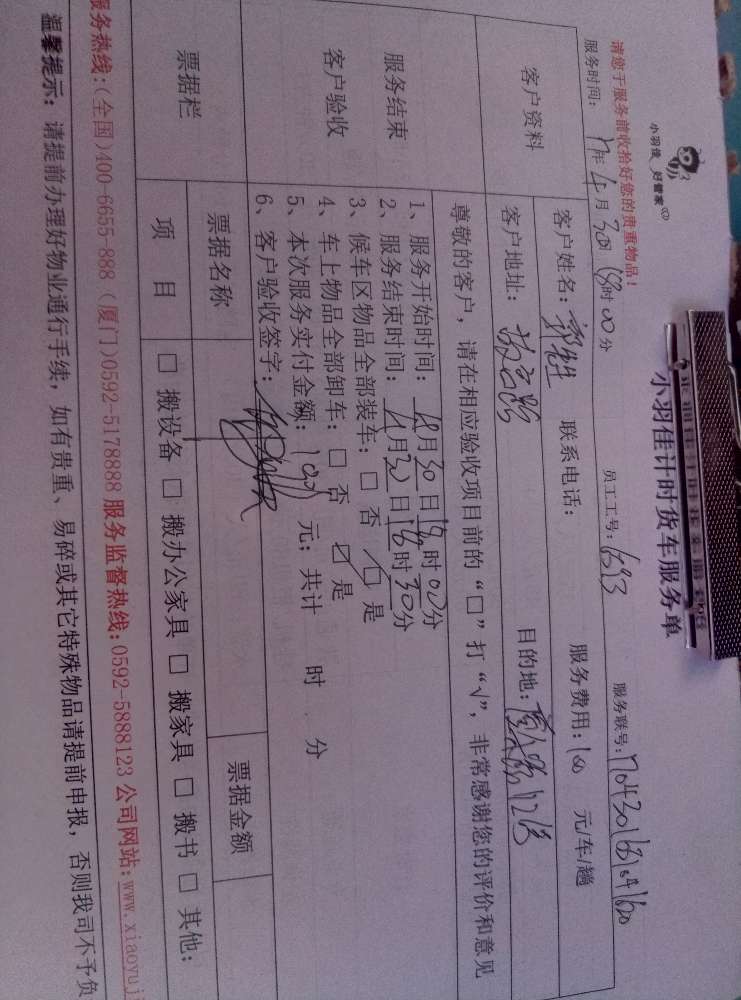 小羽佳 好管家
小羽佳计时货车服务单
请您于服务前收拾好您的贵重物品！
服务时间：17年4月30日18时00分 员工工号： 服务联号：
客户资料
客户姓名：郭姓 联系电话： 服务费用：100 元/车/趟
客户地址： 目的地：
服务结束
客户验收
尊敬的客户，请在相应验收项目前的“□”打“√”，非常感谢您的评价和意见
1、服务开始时间： 月30日18时00分
2、服务结束时间：4月30日18时30分
3、候车区物品全部装车：□ 否 ☑ 是
4、车上物品全部卸车：□ 否 ☑ 是
5、本次服务实付金额：100 元；共计 时 分
6、客户验收签字：
票据栏
票据名称 票据金额
项 目 □ 搬设备 □ 搬办公家具 □ 搬家具 □ 搬书 □ 其他：
服务热线：（全国）400-6655-888（厦门）0592-5178888 服务监督热线：0592-5888123 公司网站：www.xiaoyuj
温馨提示：请提前办理好物业通行手续，如有贵重、易碎或其它特殊物品请提前申报，否则我司不予负